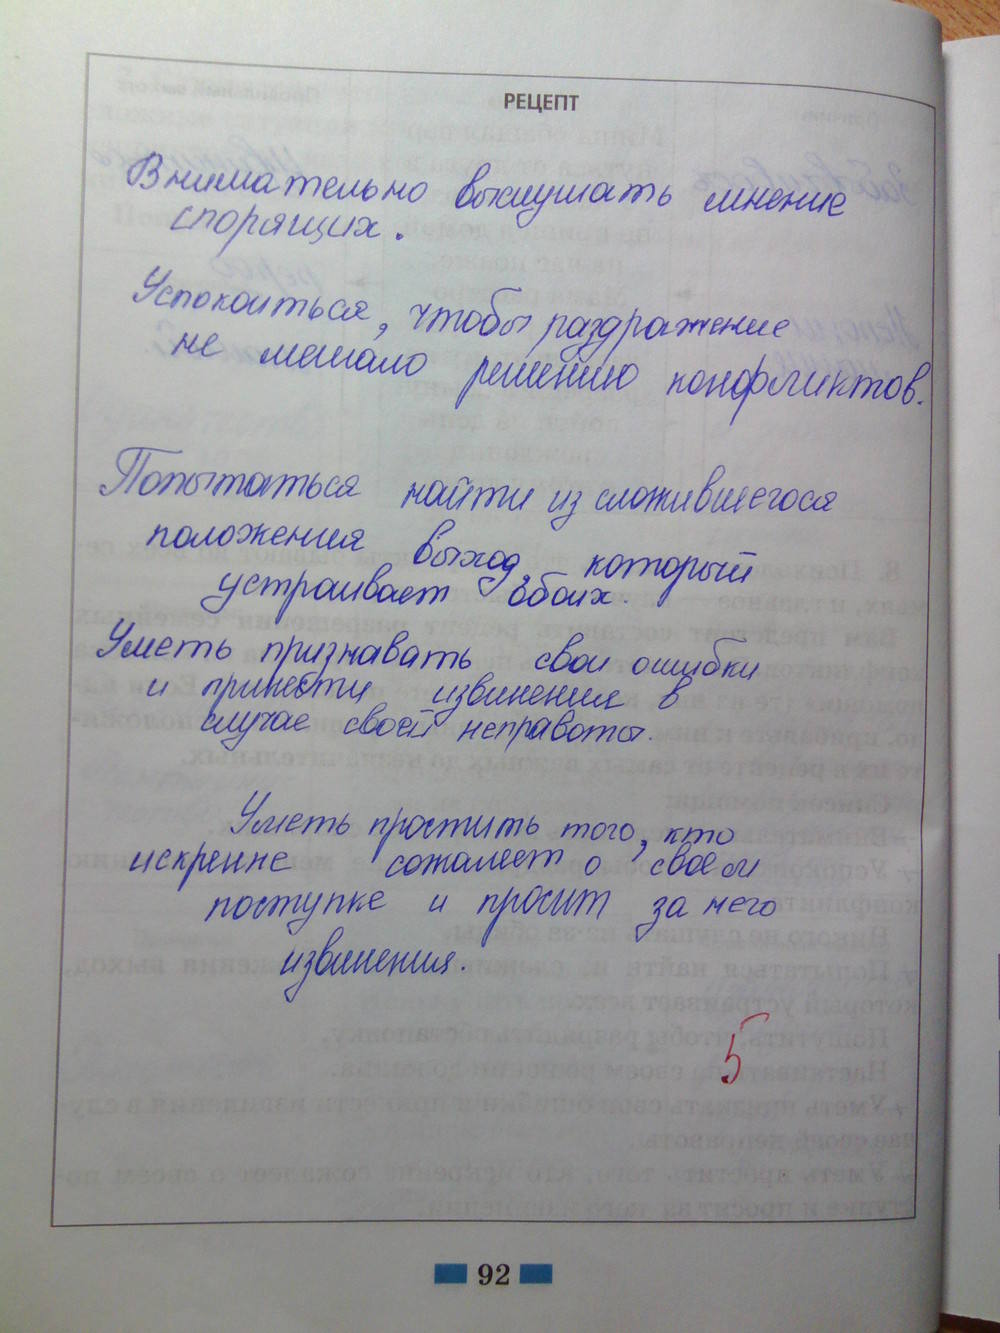 РЕЦЕПТ
Внимательно выслушать мнение
спорящих.
Успокоиться, чтобы раздражение
не мешало решению конфликтов.
Попытаться найти из сложившегося
положения выход, который
устраивает обоих.
Уметь признавать свои ошибки
и принести извинения в
случае своей неправоты.
Уметь простить того, кто
искренне сожалеет о своем
поступке и просит за него
извинения.
5
92